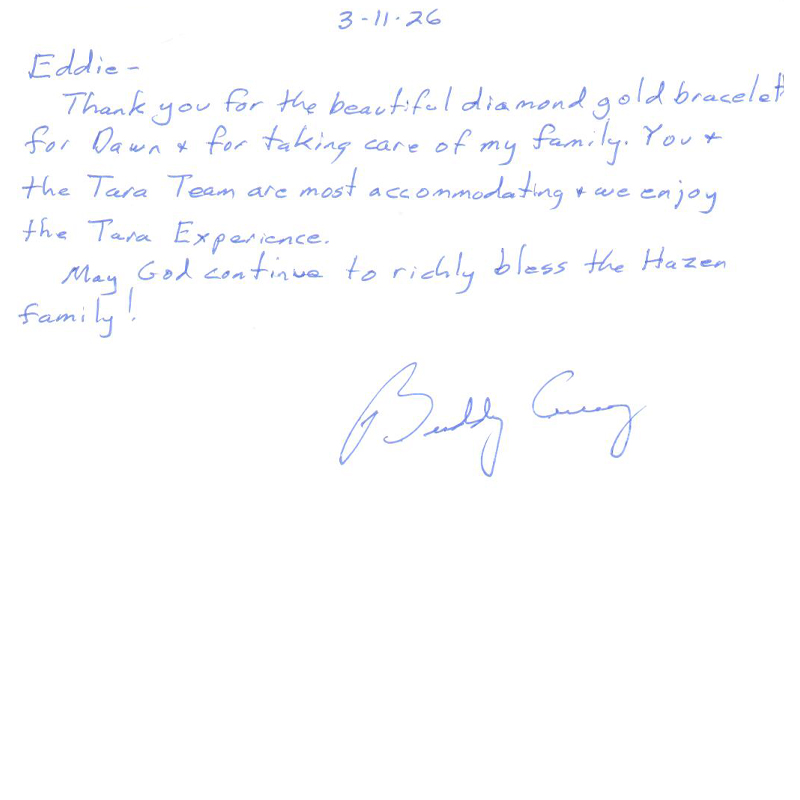 3-11-26
Eddie-
Thank you for the beautiful diamond gold bracelet
for Dawn & for taking care of my family. You &
the Tara Team are most accommodating & we enjoy
the Tara Experience.
May God continue to richly bless the Hazen
family!
Buddy